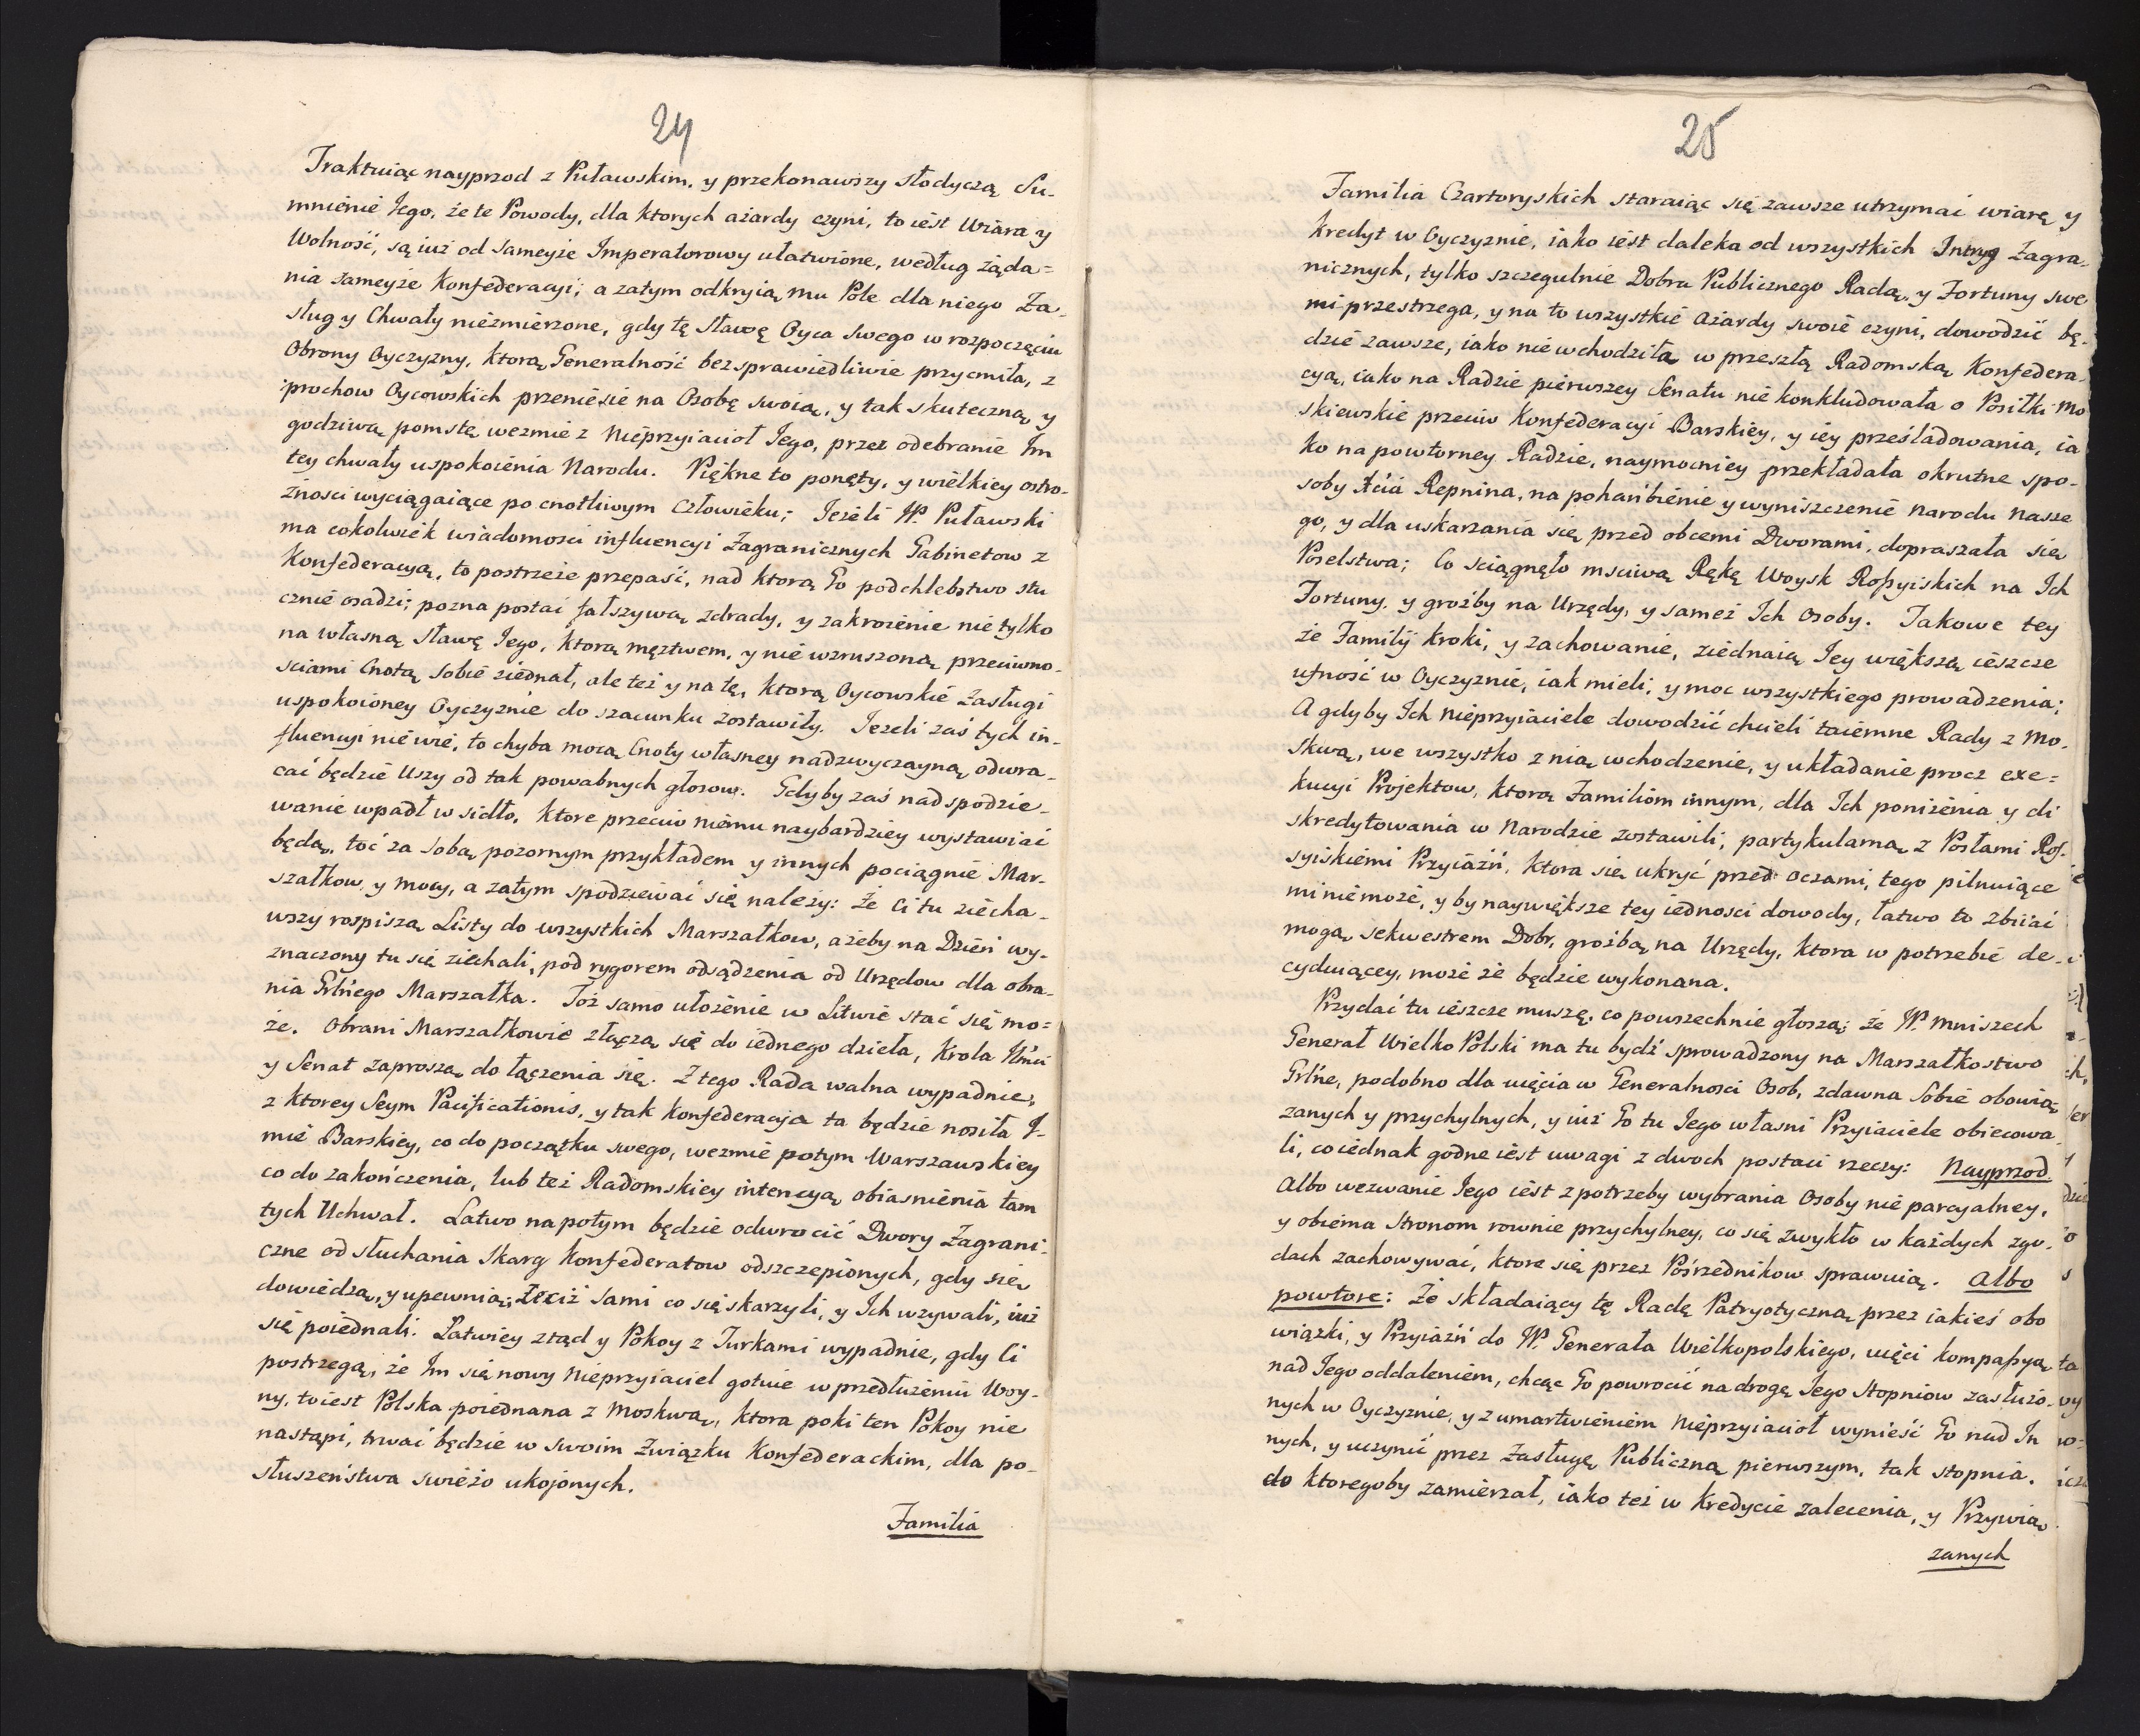 24
Traktuiąc nayprzod z Puławskim, y przekonawszy słodyczą Su-
mnienie Jego, że te Powody, dla ktorych ażardy czyni, to iest Wiara y
Wolność, są iuż od Sameyże Imperatorowy ułatwione, według żąda=
nia sameyże Konfederacyi; a zatym odkryią mu Pole dla niego Za-
sług y Chwały niezmierzone, gdy tę Sławę Oyca Swego w rozpoczęciu
Obrony Oyczyzny, ktorą Generalność bezsprawiedliwie przycmiła, z
prochow Oycowskich przeniesie na Osobę swoią, y tak skuteczną y
godziwą pomstę wezmie z Nieprzyiacioł Jego, przez odebranie Im
tey chwały uspokoienia Narodu. Piękne to ponęty, y wielkiey ostro-
żnosci wyciągaiące po cnotliwym Człowieku; Jezeli W. Puławski
ma cokolwiek wiadomosci influencyi Zagranicznych Gabinetow z
Konfederacyą, to postrzeże przepaść, nad ktorą Go podchlebstwo stu
cznie osadzi; pozna postać fałszywą zdrady, y zakroienie nie tylko
na własną Sławę Jego, ktorą męztwem, y nie wzruszoną przeciwno-
sciami Cnotą sobie ziednał, ale też y na tę, ktorą Oycowskie Zasługi
uspokoioney Oyczyznie do szacunku zostawiły. Jezeli zaś tych in-
fluencyi nie wie, to chyba mocą Cnoty własney nadzwyczayną odwra-
cać będzie Uszy od tak powabnych głosow. Gdyby zaś nadspodzie-
wanie wpadł w sidło, ktore przeciw niemu naybardziey wystawiać
będą, toć za sobą pozornym przykładem y innych pociągnie Mar-
szałkow y mocy, a zatym spodziewać się należy: Że Ci tu ziecha-
wszy rospiszą Listy do wszystkich Marszałkow, ażeby na Dzień wy-
znaczony tu się ziechali, pod rygorem odsądzenia od Urzędow dla obra-
nia Grlnego Marszałka. Toż samo ułożenie w Litwie stać się mo=
że. Obrani Marszałkowie złączą się do iednego dzieła, Krola Jmci
y Senat zaproszą do łączenia się. Z tego Rada walna wypadnie,
z ktorey Seym Pacificationis, y tak Konfederacya ta będzie nosiła J-
mie Barskiey, co do początku swego, wezmie potym Warszawskiey
co do zakończenia, lub też Radomskiey intencyą obiasnienia tam
tych Uchwał. Latwo na potym będzie odwrocić Dwory Zagrani-
czne od słuchania Skarg Konfederatow odszczepionych, gdy się
dowiedzą, y upewnią, żeciż sami co się skarzyli, y Ich wzywali, iuż
się poiednali. Łatwiey ztąd y Pokoy z Turkami wypadnie, gdy Ci
postrzegą, że Im się nowy Nieprzyiaciel gotuie w przedłużeniu Woy-
ny, toiest Polska poiednana z Moskwą, ktora poki ten Pokoy nie
nastąpi, trwać będzie w swoim Związku Konfederackim, dla po-
słuszeństwa swieżo ukojonych.
Familia
25
Familia Czartoryskich staraiąc się zawsze utrzymać wiarę y
kredyt w Oyczyznie, iako iest daleka od wszystkich Intryg Zagra-
nicznych, tylko szczegulnie Dobra Publicznego Radą, y Fortuny swe
mi przestrzega, y na to wszystkie Ażardy swoie czyni, dowodzić bę-
dzie zawsze, iako nie wchodziła w przeszłą Radomską Konfedera-
cyą, iako na Radzie pierwszey Senatu nie konkludowała o Posiłki Mo
skiewskie przeciw Konfederacyi Barskiey, y iey prześladowania, ia
ko na powtorney Radzie, naymocniey przekładała okrutne spo-
soby Xcia Repnina, na pohańbienie y wyniszczenie Narodu Nasze
go, y dla uskarzania się przed obcemi Dworami, dopraszała się
Poselstwa; Co sciągnęło msciwą Rękę Woysk Roszyiskich na Ich
Fortuny, y groźby na Urzędy, y sameż Ich Osoby. Takowe tey
że Familij kroki, y zachowanie, ziednaią Jey większą ieszcze
ufność w Oyczyznie, iak mieli, y moc wszystkiego prowadzenia;
A gdyby Ich Nieprzyiaciele dowodzić chcieli taiemne Rady z Mo-
skwą, we wszystko z nią wchodzenie, y układanie procz exe=
kucyi Projektow, ktorą Familiom innym, dla Ich poniżenia y di
skredytowania w Narodzie zostawili, partykularną z Posłami Ros-
syiskiemi Przyiaźń, ktora się ukryć przed oczami, tego pilnuiące
mi nie może, y by naywiększe tey iednosci dowody, łatwo to zbiiać
mogą sekwestrem Dobr, groźbą na Urzędy, ktora w potrzebie de-
cyduiącey, może że będzie wykonana.
Przydać tu ieszcze muszę, co powszechnie głoszą; że W. Mniszech
Generał Wielko Polski ma tu bydź sprowadzony na Marszałkostwo
Grlne, podobno dla uięcia w Generalnosci Osob, zdawna Sobie obowią
zanych y przychylnych, y iuż Go tu Jego własni Przyiaciele obiecowa-
li, co iednak godne iest uwagi z dwoch postaci rzeczy: Nayprzod
Albo wezwanie Jego iest z potrzeby wybrania Osoby nie parcyalney,
y obiema Stronom rownie przychylney, co się zwykło w każdych zgo-
dach zachowywać, ktore się przez Pośrzednikow sprawuią. Albo
powtore: Że składaiący tę Radę Patryotyczną przez iakieś obo
wiązki, y Przyiaźń do W. Generała Wielkopolskiego, uięci kompaszyą
nad Jego oddaleniem, chcąc Go powrocić na drogę Jego Stopniow zasłużo-
nych w Oyczyznie, y z umartwieniem Nieprzyiacioł wynieść Go nad In
nych, y uczynić przez Zasługę Publiczną pierwszym, tak stopnia,
do ktoregoby zamierzał, iako też w Kredycie zalecenia, y Przywią
zanych